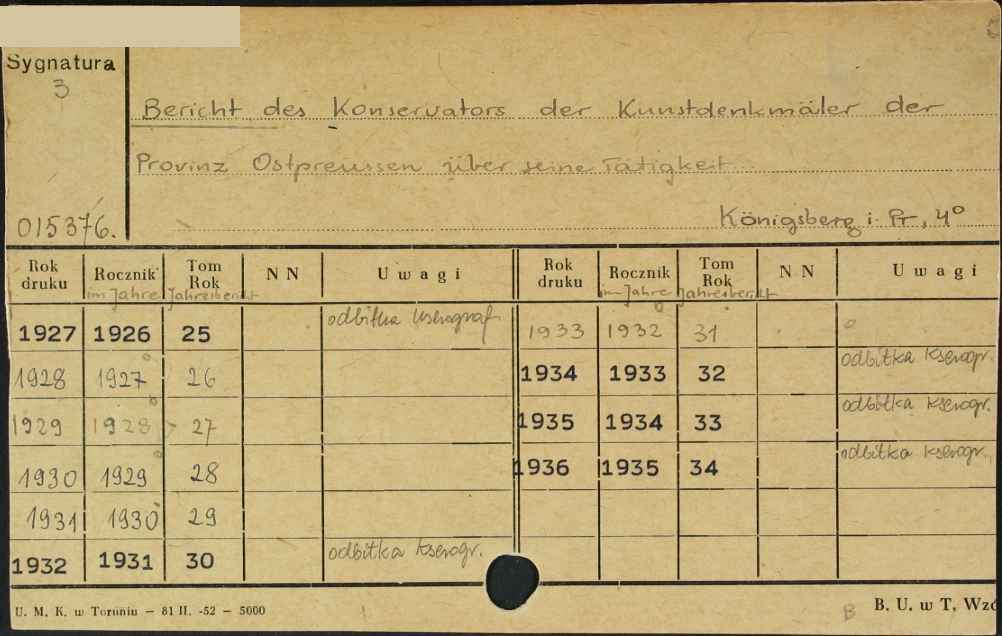 Sygnatura
3
015376.
Bericht des Konservators der Kunstdenkmäler der
Provinz Ostpreussen über seine Tätigkeit
Königsberg i. Pr, 4°
Rok druku Rocznik Tom Rok N N Uwagi Rok druku Rocznik Tom Rok N N Uwagi
im Jahre Jahresbericht im Jahre Jahresbericht
1927 1926 25 odbitka kserograf. 1933 1932 31
1928 1927 26 1934 1933 32 odbitka kserogr.
1929 1928 27 1935 1934 33 odbitka kserogr.
1930 1929 28 1936 1935 34 odbitka kserogr.
1931 1930 29
1932 1931 30 odbitka kserogr.
U. M. K. w Toruniu — 81 II. -52 — 5000
B
B. U. w T. Wzó